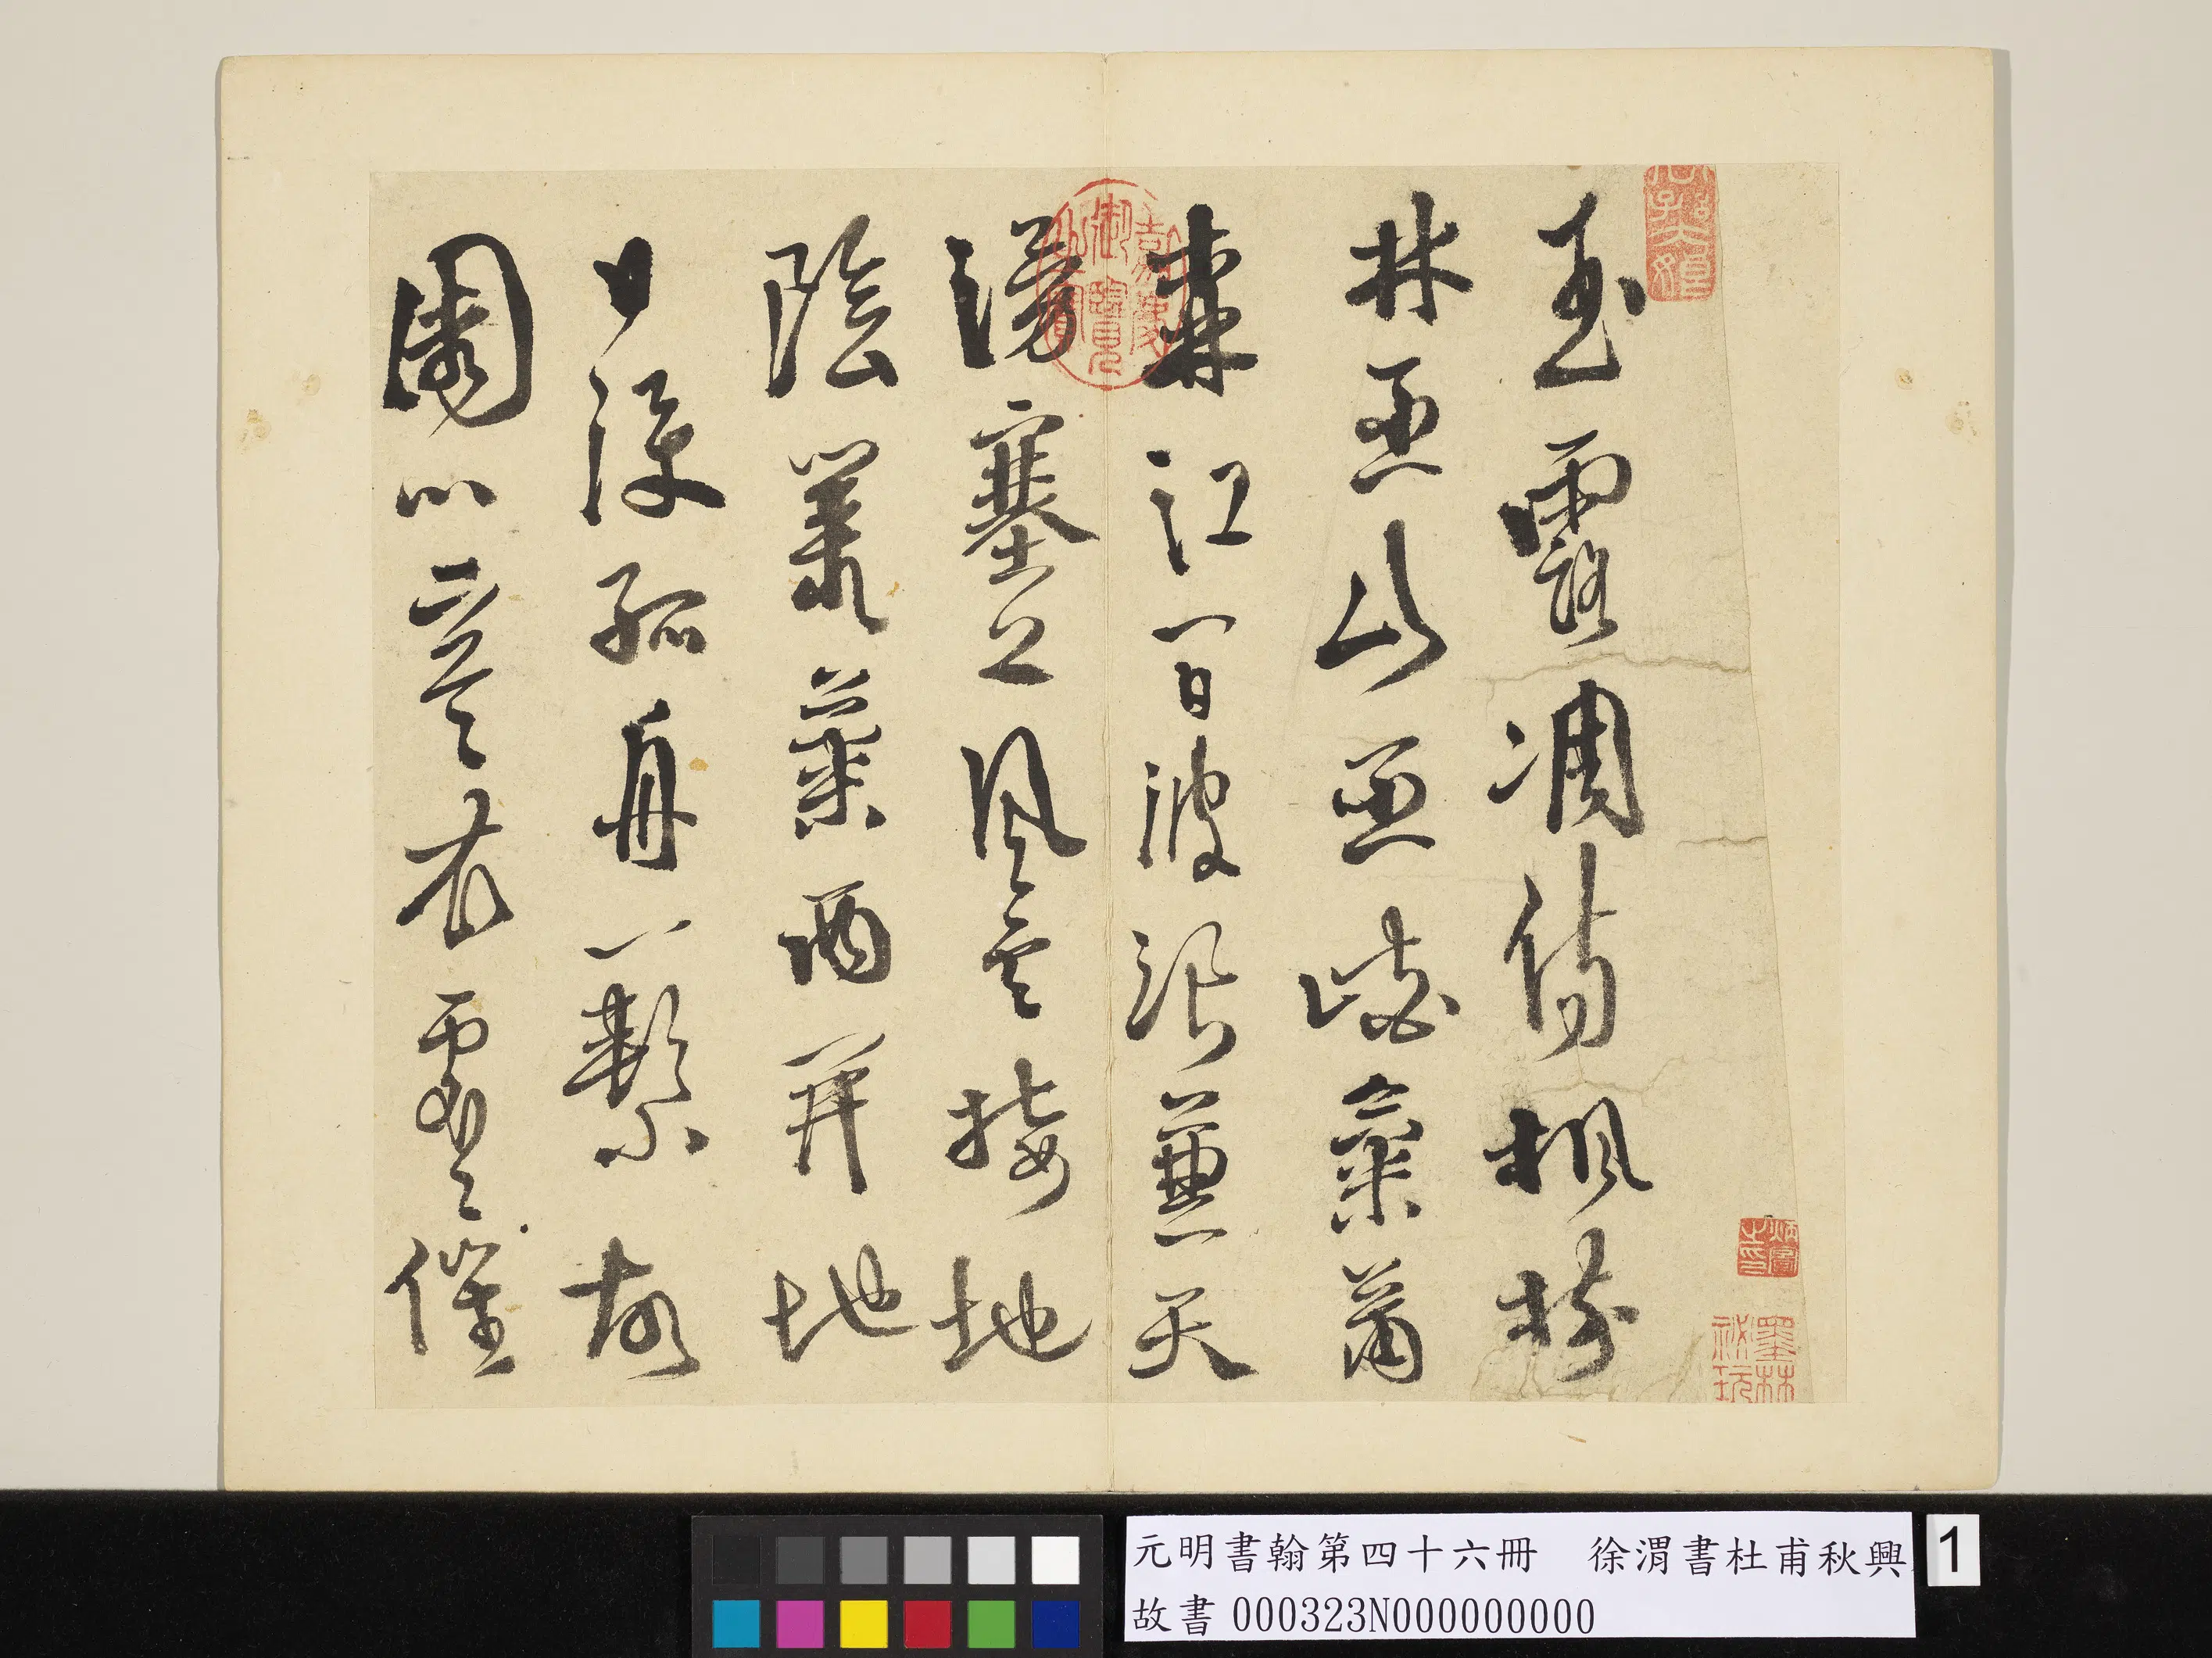 玉露凋傷楓樹
林巫山巫峽氣蕭
森江間波浪兼天
湧塞上風雲接地
陰叢菊兩開地
日淚孤舟一繫故
園心寒衣處處催
嘉慶御覽之寶
墨林祕玩
元明書翰第四十六冊 徐渭書杜甫秋興
故書 000323N000000000
1